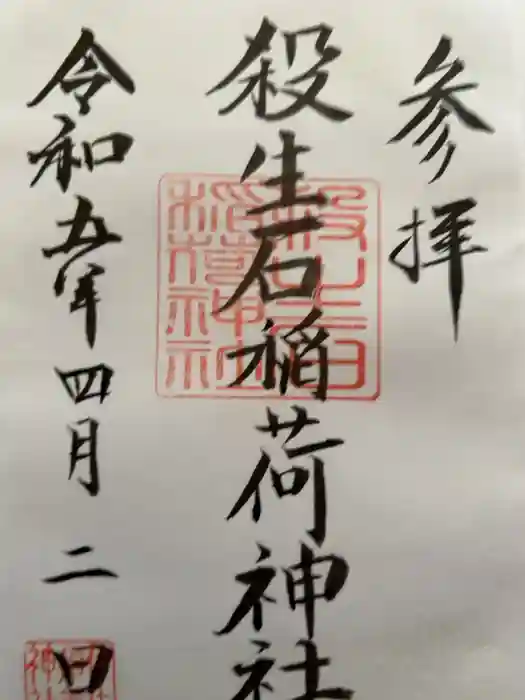 参拝
殺生石稲荷神社
令和五年四月二日